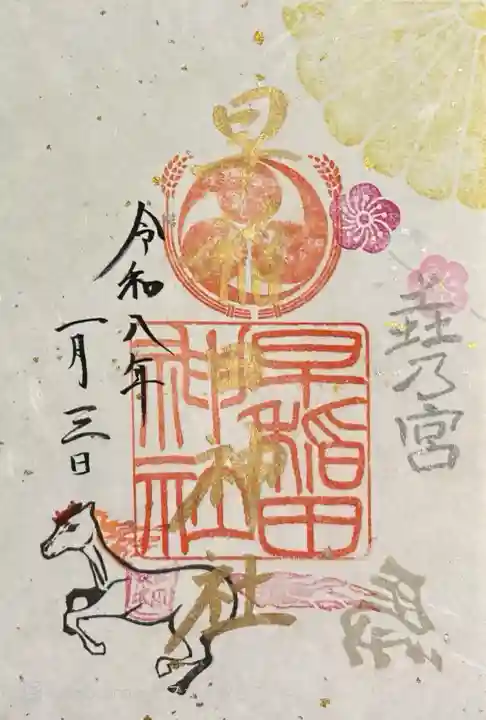 乃宮
早稲田神社
早稲田
神社
令和八年
一月三日